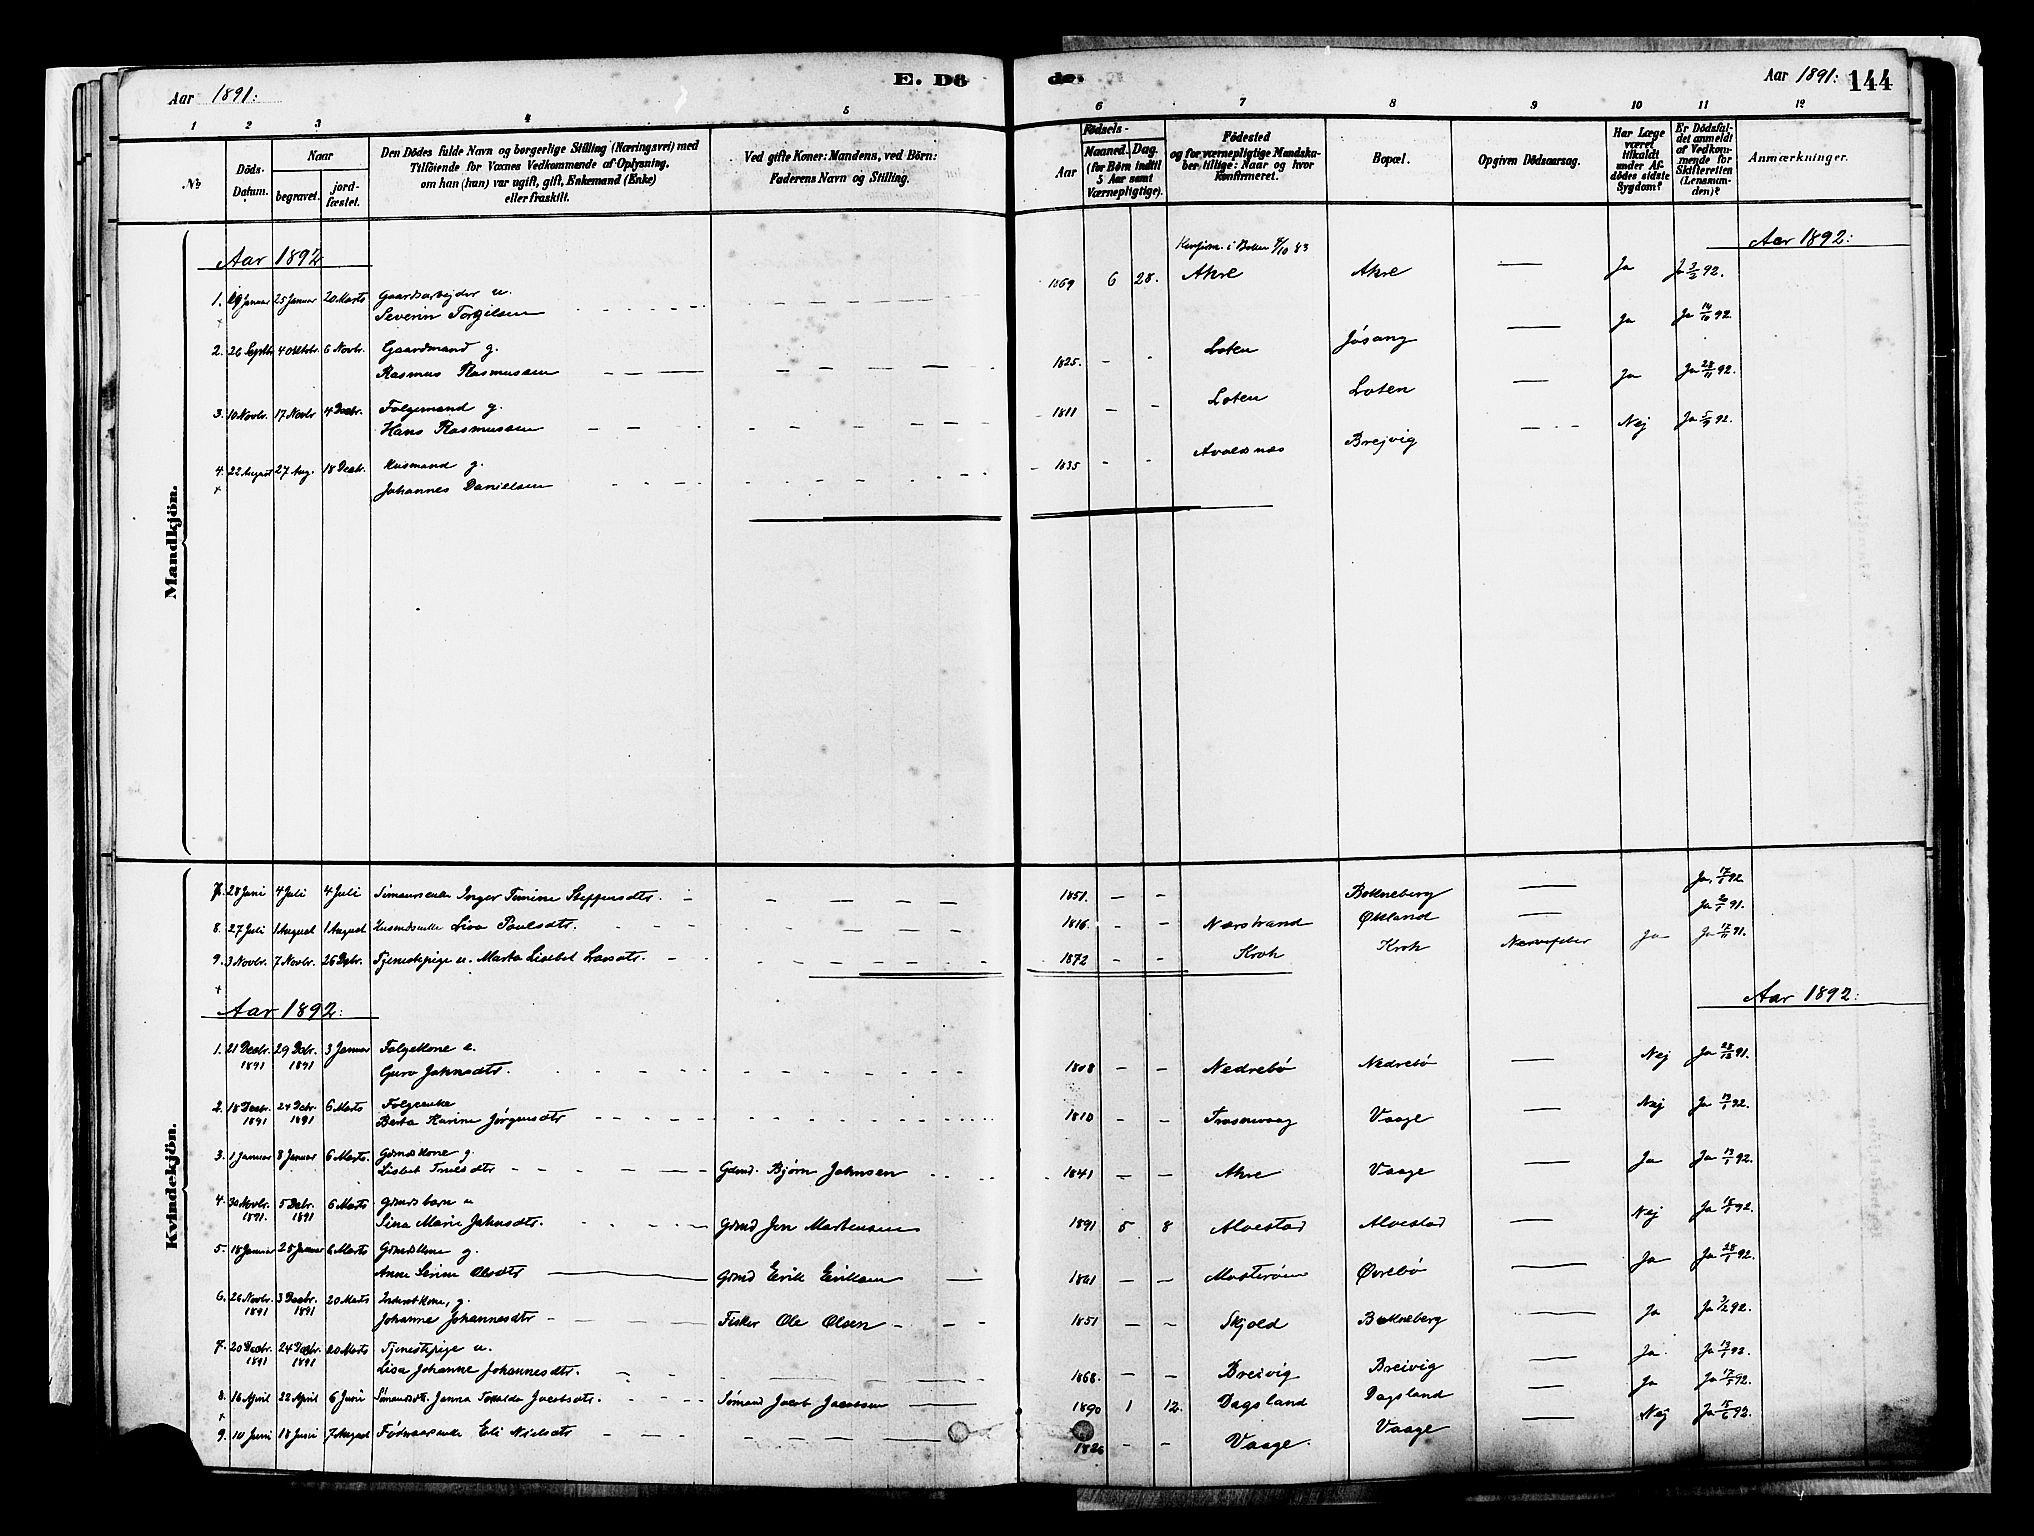 Aar 1891:
E. Dö
de.
Aar 1891:
144
1 2 3 4 5 6 7 8 9 10 11 12
No
Döds-Datum.
Naar
begravet.
jord-fæstet.
Den Dödes fulde Navn og borgerlige Stilling (Næringsvei) med
Tilföiende for Voxnes Vedkommende af Oplysning.
om han (hun) var ugift, gift, Enkemand (Enke)
eller fraskilt.
Ved gifte Koner: Mandens, ved Börn:
Faderens Navn og Stilling.
Födsels-
Aar
Maaned. Dag.
(for Börn indtil
5 Aar samt
Værnepligtige).
Födested
og for værnepligtige Mandska-
ber tillige: Naar og hvor
konfirmeret.
Bopæl.
Opgiven Dödsaarsag.
Har Læge
været
tilkaldt
under Af-
dödes sidste
Sygdom?
Er Dödsfal-
det anmeldt
af Vedkom-
mende for
Skifteretten
(Lensman-
den)?
Anmærkninger.
Mandkjön.
Aar 1892
Aar 1892:
1. 19 Januar 25 Januar 20 Marts Gaardsarbejder u. Severin Torgilsen 1869 6 28. Konfirm. i Bokn 7/10 83 Akre Akre — Ja Ja 3/2 92.
2. 26 Septbr 4 Oktobr. 6 Novbr. Gaardmand g. Rasmus Rasmussen 1825. Loten Jøsang — Ja Ja 14/10 92.
3. 10 Novbr. 17 Novbr 4 Decbr. Folgemand g. Hans Rasmussen 1811 Loten Loten — Ja Ja 28/11 92.
4. 22 August 27 Aug. 18 Decbr. Husmand g. Johannes Danielsen 1835 Avaldsnæs Brejvig — Nej Ja 5/9 92.
Kvindekjön.
7. 28 Juni 4 Juli 4 Juli Inger Steffensdtr. 1851. — — Bokneberg — Ja 17/1 92
8. 27 Juli 1 August 1 August Husmdsenke Liva Paulsdtr. 1816. - - Nærstrand Økland — Ja 91.
9. 3 Novbr. 7 Novbr. 26 Decbr. Tjenestepige u. Marta Lisebet Larsdtr. 1872 — - Kroh Kroh Nervefeber Ja Ja 17/11 91.
Aar 1892:
Aar 1892:
1. 21 Decbr. 1891 29 Decbr. 1891 3 Januar Folgekone e. Guro Johnsdtr. 1808 — — Nedrebö Nedrebö — Nej Ja 28/12 91.
2. 18 Decbr. 1891 24 Decbr. 1891 6 Marts Folgeenke Berta Karine Jørgensdtr 1810 — — Vaage — Nej Ja 13/1 92.
3. 1 Januar 8 Januar 6 Marts. Gdmdskone g. Lisbet Truls dtr Gdmd. Bjørn Johnsen 1841 — — Akre Vaage — Ja Ja 13/1 92.
4. 30 Novbr. 1891. 5 Decbr. 1891 6 Marts Gdmdsbarn u Sina Marie Johnsdtr. Gdmd Jon Mortensen 1891 5 8 Alvestad Alvestad — Nej Ja 92.
5. 18 Januar 25 Januar 6 Marts Gdmdskone g. Anne Serine Olsdtr Gdmd Erik Eriksen 1841 — — Mosterøen Øvrebö — Ja Ja 28/1 92.
6. 26 Novbr. 1891 3 Decbr. 1891 20 Marts Inderstkone, g. Johanne Johannesdtr Fisker Ole Olsen 1851 — — Skjold Bokneberg — Ja Ja 3/2 92.
7. 20 Decbr. 1891 24 Decbr. 1891 20 Marts Tjenestepige u. Lisa Johanne Johannesdtr. 1868. — — Breivig Breivig — Ja. Ja 13/1 92.
8. 16 April 22 April 6 Juni Sömandsdtr. Janna Jacobsdtr. Sømand Jacob Jacobsen 1890 1 12. Dagsland Dagsland — Ja Ja 17/5 92.
9. 10 Juni 18 Juni 7 August Eli Nielsdtr 1826 — — Vaage. Vaage — Nej Ja 15/6 92.